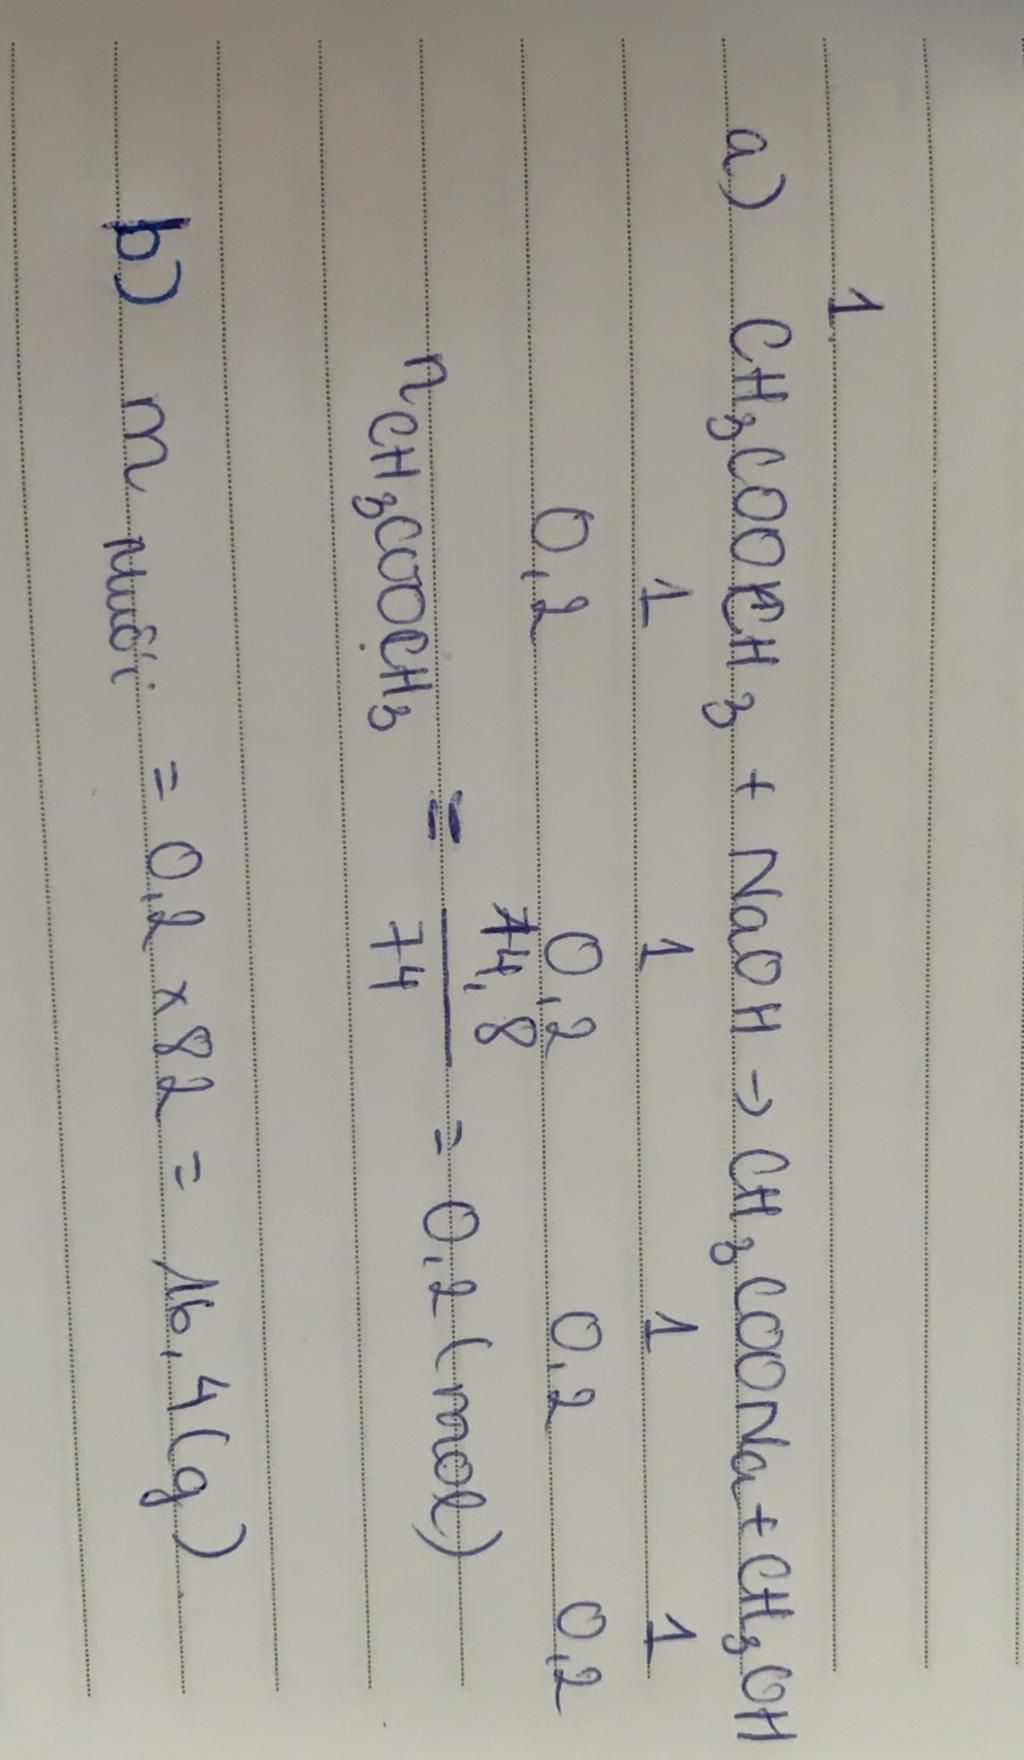 1.
a) CH₃COOCH₃ + NaOH → CH₃COONa + CH₃OH
1 1 1 1
0,2 0,2 0,2 0,2
nCH₃COOCH₃ = 14,8 / 74 = 0,2 (mol)
b) m muối = 0,2 x 82 = 16,4 (g)